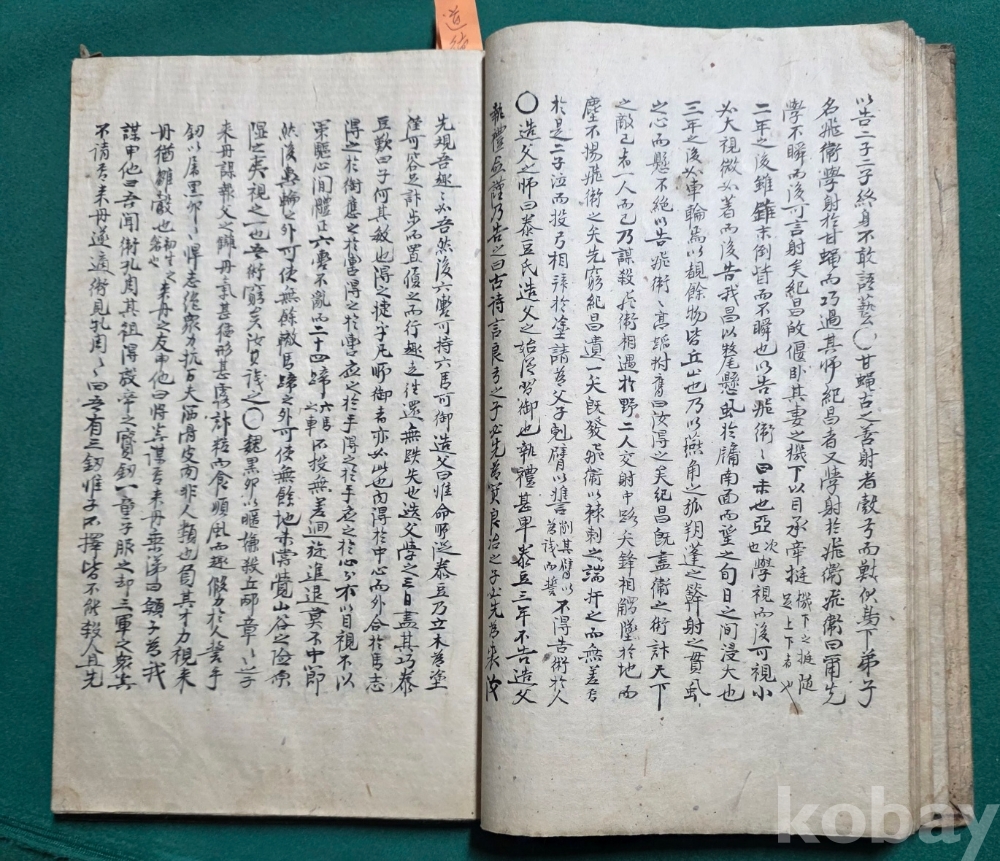 以告二子二子終身不敢語藝〇甘蠅古之善射者彀弓而獸伏鳥下弟子
名飛衛學射於甘蠅而巧過其師紀昌者又學射於飛衛飛衛曰爾先
學不瞬而後可言射矣紀昌敀偃卧其妻之機下以目承牽挺機下之挺隨足上下者也
二年之後雖錐末倒眥而不瞬也以告飛衛〻曰未也亞次也學視而後可視小
如大視微如著而後告我昌以氂懸虱於牖南面而望之旬日之間浸大也
三年之後如車輪焉以覩餘物皆丘山也乃以燕角之弧朔蓬之簳射之貫虱
之心而懸不絶以告飛衛〻高蹈拊膺曰汝得之矣紀昌旣盡衛之術計天下
之敵己者一人而已乃謀殺飛衛相遇於野二人交射中路矢鋒相觸墜於地而
塵不揚飛衛之矢先窮紀昌遺一矢旣發飛衛以棘刺之端扞之而無差焉
於是二子泣而投弓相拜於塗請爲父子剋臂以誓削其臂以爲誡而誓不得告術於人
〇造父之師曰泰豆氏造父之始從習御也執禮甚卑泰豆三年不告造父
執禮愈謹乃告之曰古詩言良弓之子必先爲箕良冶之子必先爲裘汝
先觀吾趣〻如吾然後六轡可持六馬可御造父曰惟命所從泰豆乃立木爲塗
僅可容足計步而置履之而行趣之往還無跌失也造父學之三日盡其巧泰
豆歎曰子何其敏也得之捷乎凡所御者亦如此也內得於中心而外合於馬志
得之於銜應之於轡得之於轡應之於手得之於手應之於心則不以目視不以
策驅心閒體正六轡不亂而二十四蹄六馬之車不投無差迴旋進退莫不中節
然後輿輪之外可使無餘轍馬蹄之外可使無餘地未嘗覺山谷之險原
隰之夷視之一也吾術窮矣汝其識之〇魏黑卵以暱嫌殺丘邴章〻之子
來丹謀報父之讎丹氣甚猛形甚露計粒而食順風而趣假力於人誓手
劒以屠黑卵〻〻悍志絶衆力抗百夫洒骨皮肉非人類也負其才力視來
丹猶雛鷇也來丹之友申他曰將奚謀焉來丹垂涕曰願子爲我
謀申他曰吾聞衛孔周其祖得殷帝之寶劒一童子服之却三軍之衆奚
不請焉來丹遂適衛見孔周〻〻曰吾有三劒惟子所擇皆不能殺人且先